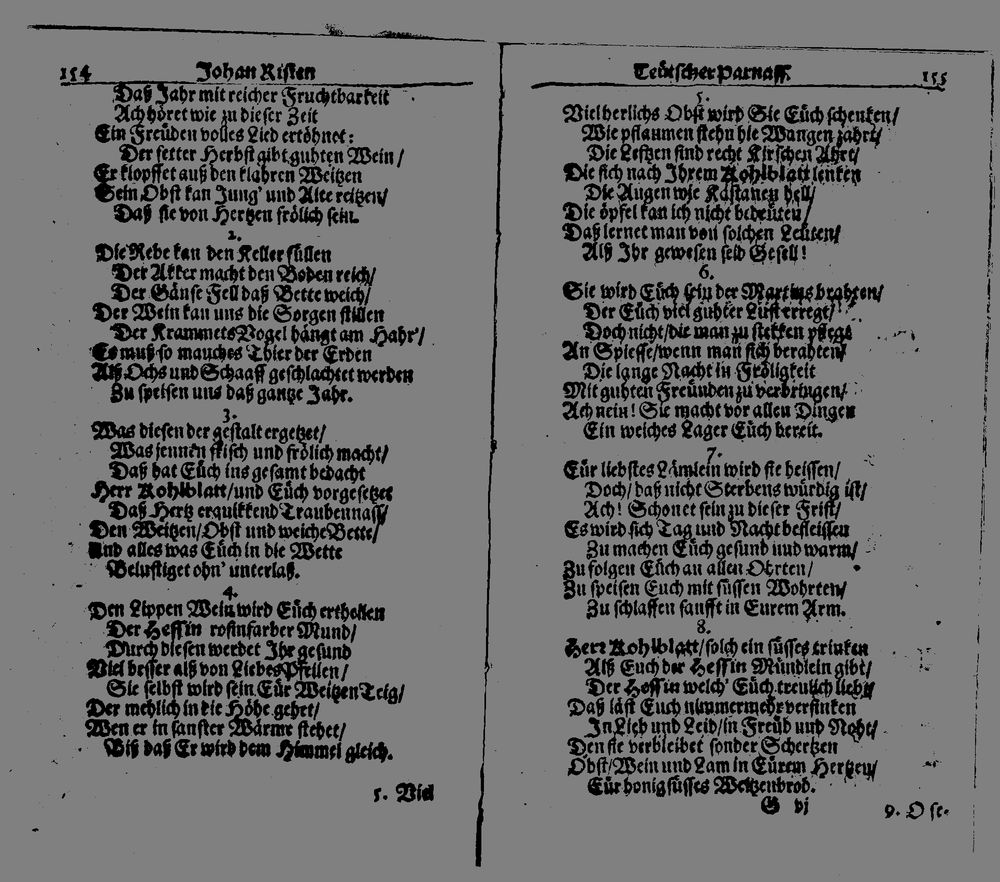 154 Johan Risten
Daß Jahr mit reicher Fruchtbarkeit
Ach höret wie zu dieser Zeit
Ein Freüden volles Lied ertöhnet:
Der fetter Herbst gibt guhten Wein/
Er klopffet auß den klahren Weitzen
Sein Obst kan Jung' und Alte reitzen/
Daß sie von Hertzen frölich sein.
2.
Die Rebe kan den Keller füllen
Der Akker macht den Boden reich/
Der Gänse Fell daß Bette weich/
Der Wein kan uns die Sorgen stillen
Der KrammetsVogel hängt am Hahr'/
Es muß so manches Thier der Erden
Alß Ochs und Schaaff geschlachtet werden
Zu speisen uns daß gantze Jahr.
3.
Was diesen der gestalt ergetzet/
Was jennen frisch und frölich macht/
Daß hat Eüch ins gesamt bedacht
Herr Kohlblatt/und Eüch vorgesetzet
Daß Hertz erquikkend Traubennass/
Den Weitzen/Obst und weiche Bette/
und alles was Eüch in die Wette
Belustiget ohn' unterlaß.
4.
Den Lippen Wein wird Eüch ertheilen
Der Hessin rosinfarber Mund/
Durch diesen werdet Ihr gesund
Viel besser alß von LiebesPfeilen/
Sie selbst wird sein Eür WeitzenTeig/
Der mehlich in die Höhe gehet/
Wen er in sanfter Wärme stehet/
Biß daß Er wird dem Himmel gleich.
5. Viel
Teütscher Parnass. 155
5.
Viel herlichs Obst wird Sie Eüch schenken/
Wie pflaumen stehn die Wangen zahrt/
Die Leftzen sind recht Kirschen Ahrt/
Die sich nach Ihrem Kohlblatt lenken
Die Augen wie Kastanen hell/
Die öpfel kan ich nicht bedeüten/
Daß lernet man von solchen Leüten/
Alß Ihr gewesen seid Gesell!
6.
Sie wird Eüch sein der Martins brahten/
Der Eüch viel guhter Lüst erregt/
Doch nicht/die man zu stekken pflegt
An Spiesse/wenn man sich berahten/
Die lange Nacht in Fröligkeit
Mit guhten Freünden zu verbringen/
Ach nein! Sie macht vor allen Dingen
Ein weiches Lager Eüch bereit.
7.
Eür liebstes Lämlein wird sie heissen/
Doch/daß nicht Sterbens würdig ist/
Ach! Schonet sein zu dieser Frist/
Es wird sich Tag und Nacht befleissen
Zu machen Eüch gesund und warm/
Zu folgen Eüch an allen Ohrten/
Zu speisen Euch mit süssen Wohrten/
Zu schlaffen sanfft in Eurem Arm.
8.
Herr Kohlblatt/solch ein süsses trinken
Alß Euch der Hessin Mündlein gibt/
Der Hessin welch' Eüch treulich liebt/
Daß läst Euch nimmermehr versinken
In Lieb und Leid/in Freüd und Noht/
Den sie verbleibet sonder Schertzen
Obst/Wein und Lam in Eürem Hertzen/
Eür honigsüsses Weitzenbrod.
G vj 9. O se-